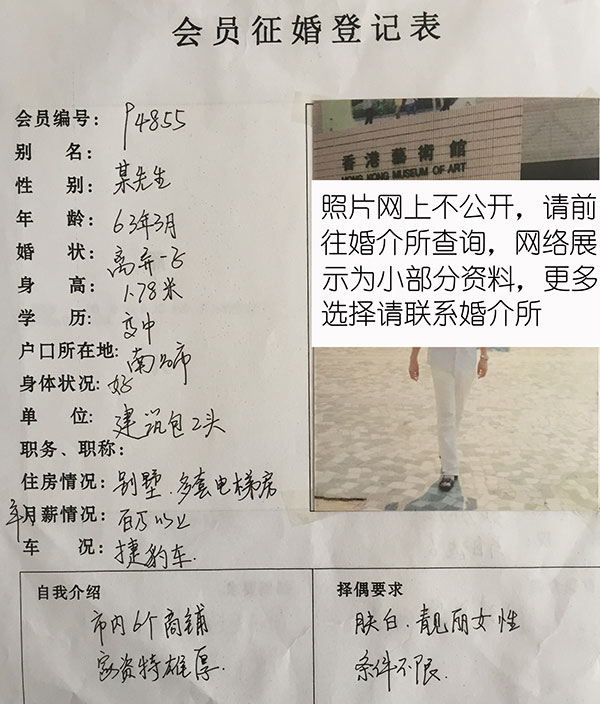 会员征婚登记表
会员编号: P4855
别 名:
性 别: 某先生
年 龄: 63年3月
婚 状: 离异
身 高: 1.78米
学 历: 中
户口所在地: 南昌市
身体状况: 好
单 位: 建筑包工头
职务、职称:
住房情况: 别墅.多套电梯房
年月薪情况: 百万以上
车 况: 捷豹车.
香港藝術館
HONG KONG MUSEUM OF ART
照片网上不公开，请前
往婚介所查询，网络展
示为小部分资料，更多
选择请联系婚介所
自我介绍
市内6个商铺
家资特雄厚.
择偶要求
肤白.靓丽女性
条件不限.